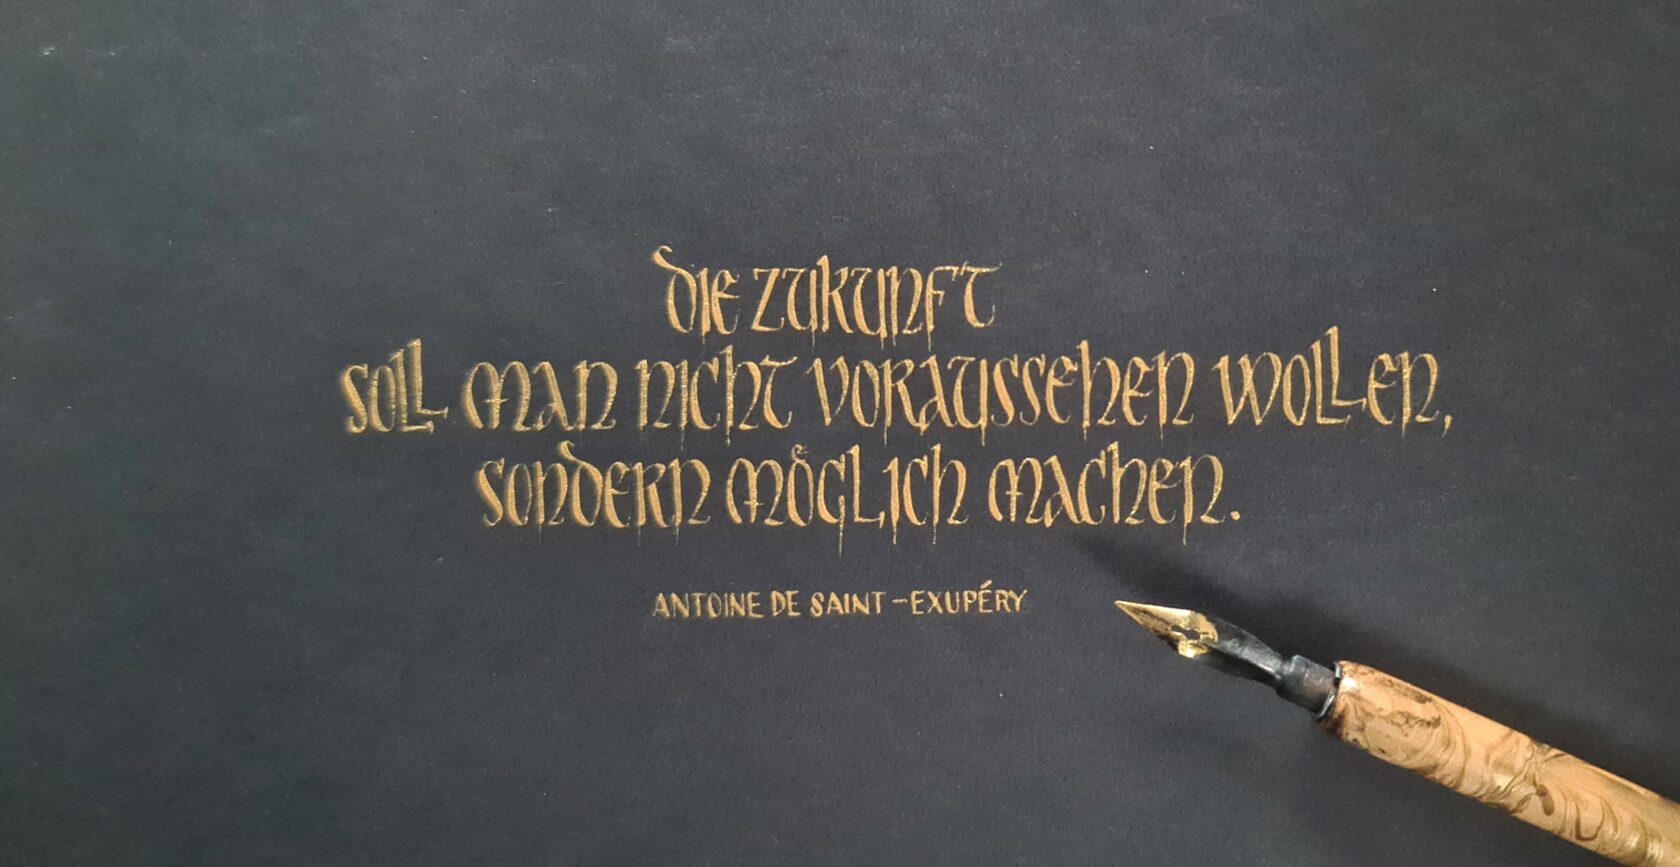 die Zukunft
soll man nicht voraussehen wollen,
sondern möglich machen.
ANTOINE DE SAINT-EXUPÉRY